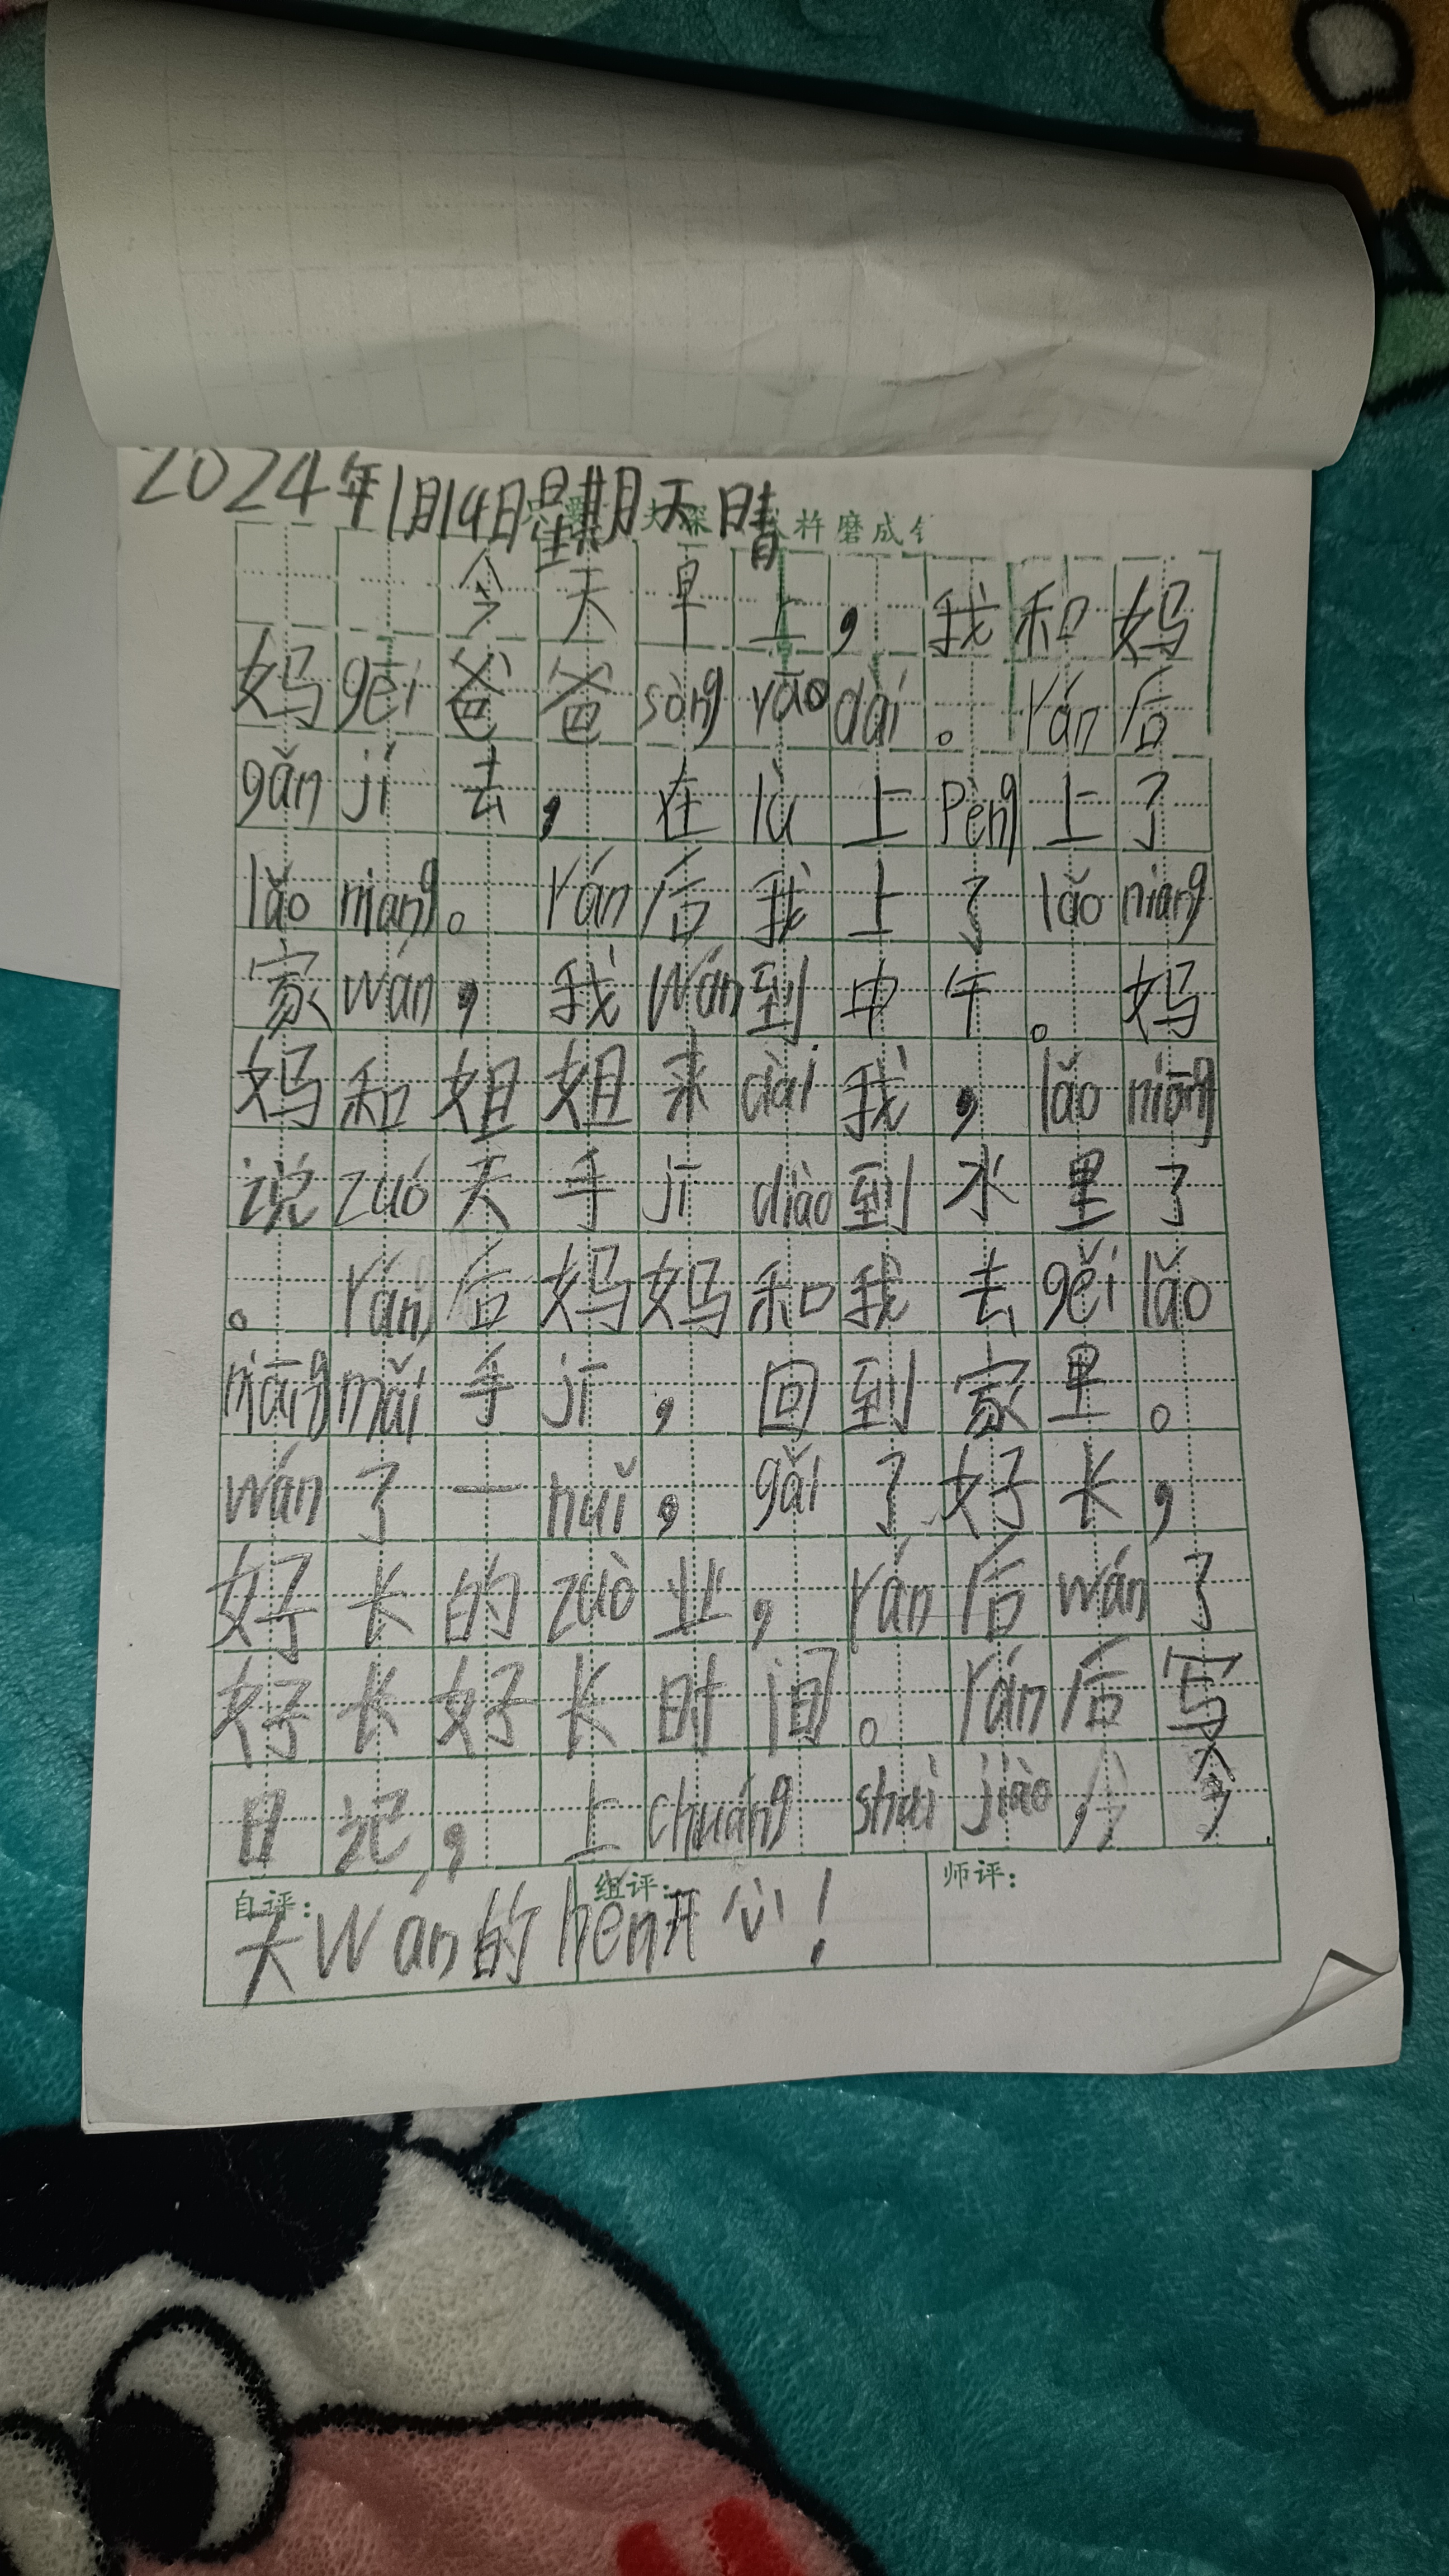 2024年1月14日星期天晴
杵磨成
今天早上，我和妈
妈gěi爸爸sòng yāo dài。rán后
gǎn jí去，在lù上pèng上了
lǎo niang。rán后我上了lǎo niang
家wán，我wán到中午。妈
妈和姐姐来dài我，lǎo niāng
说zuó天手jī diào到水里了
。rán后妈妈和我去gěi lǎo
niāng mǎi手jī，回到家里。
wán了一huǐ，gǎi了好长，
好长的zuò业，rán后wán了
好长好长时间。rán后写
日记，上chuáng shuì jiào，今
自评： 组评： 师评：
天wán的hěn开心！